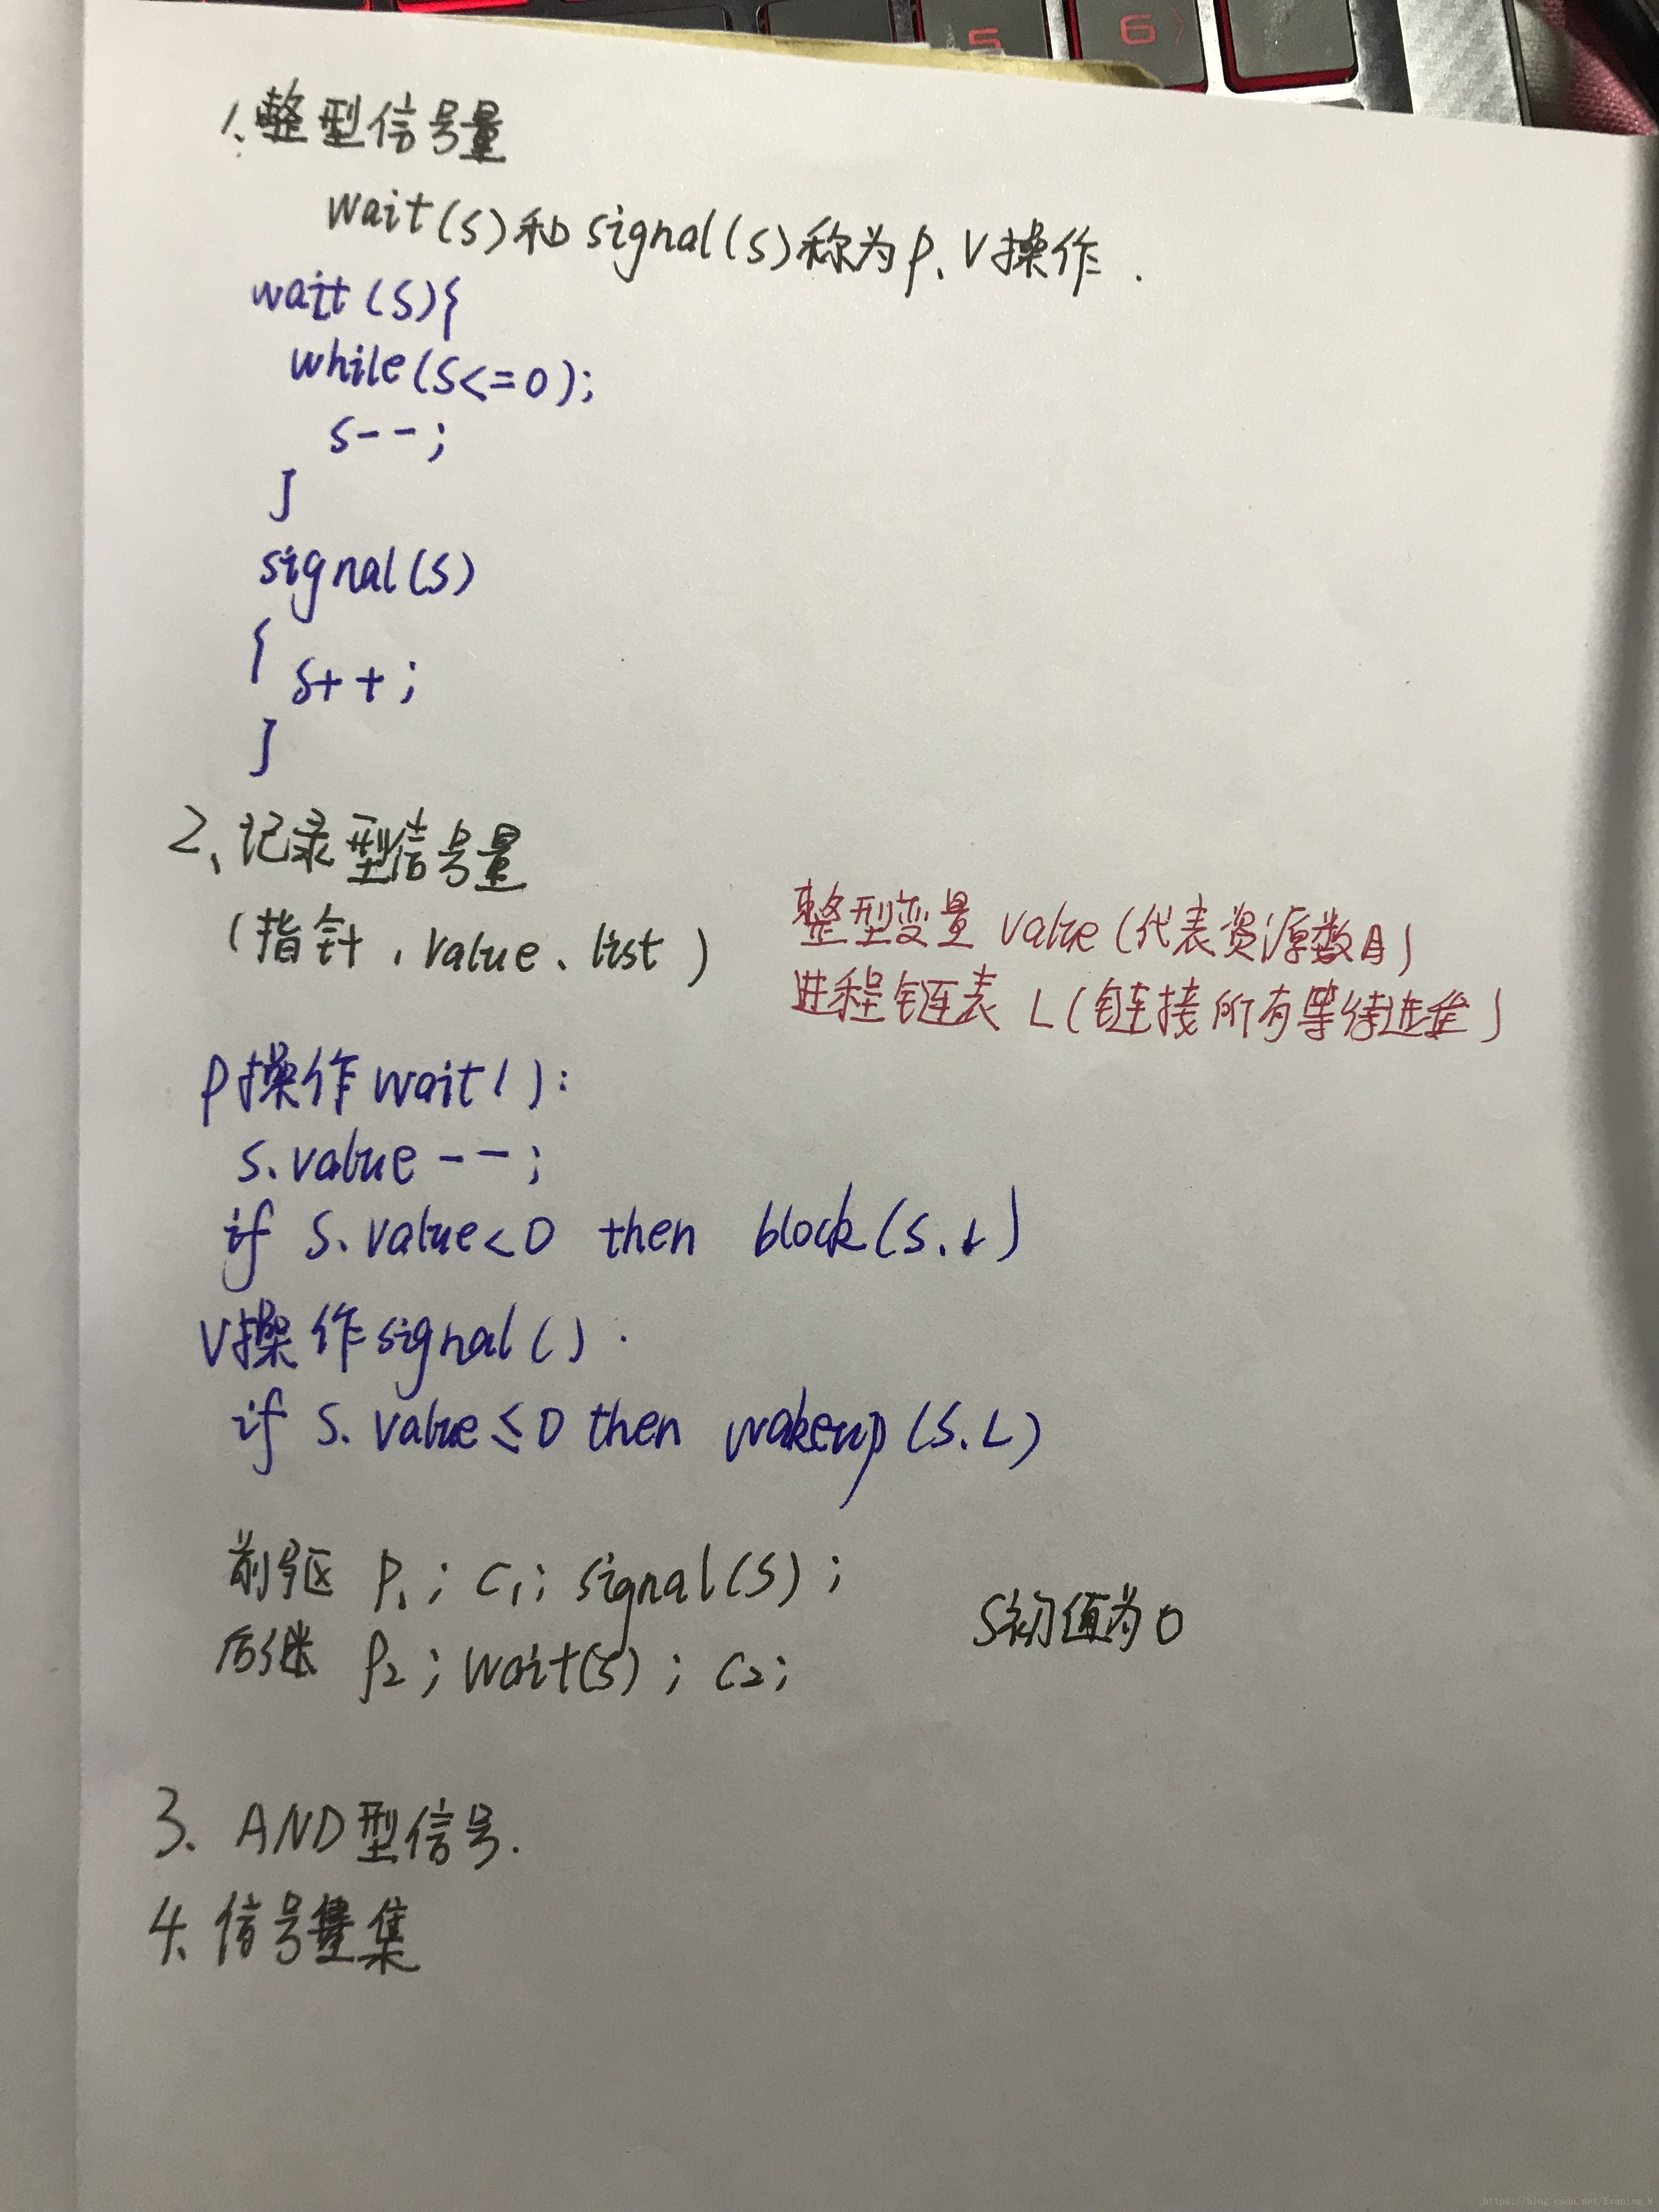 5
6
1、整型信号量
wait(s)和signal(s)称为P、V操作.
wait(S){
while(S<=0);
S--;
}
signal(S)
{
S++;
}
2、记录型信号量
(指针、value、list)
整型变量 value(代表资源数目)
进程链表 L(链接所有等待进程)
P操作wait():
S.value--;
if S.value<0 then block(S.L)
V操作signal().
if S.value≤0 then wakeup(S.L)
前驱 P₁; C₁; signal(S);
S初值为0
后继 P₂; wait(S); C₂;
3、AND型信号.
4、信号量集